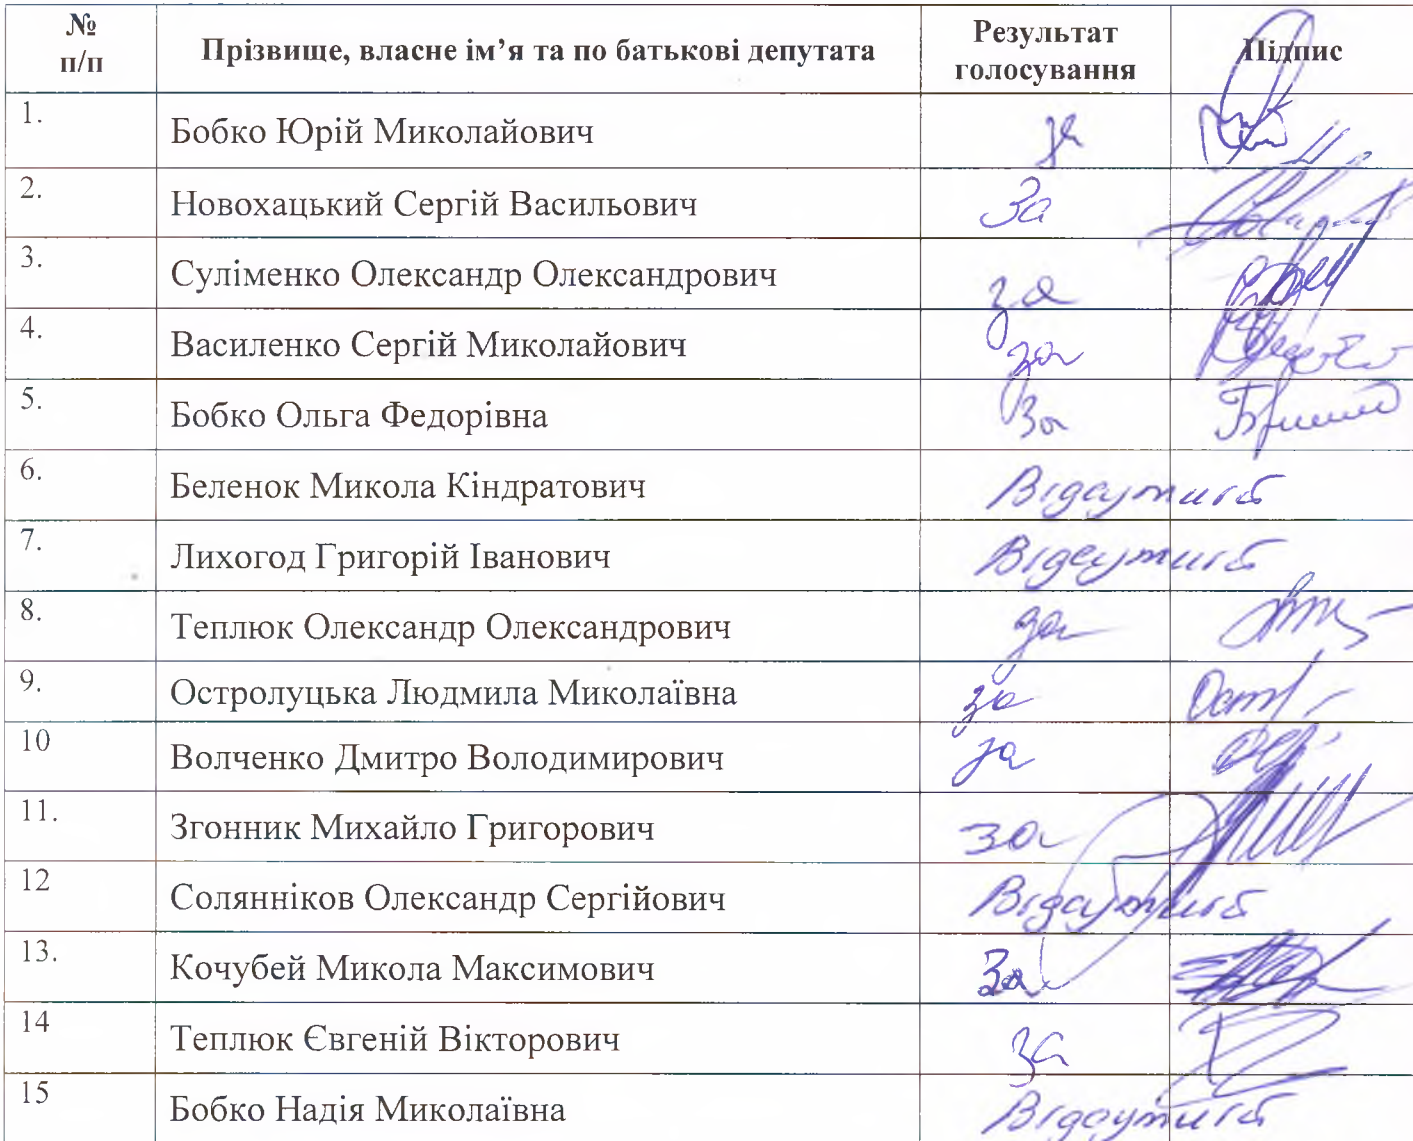 № п/п Прізвище, власне ім’я та по батькові депутата Результат голосування Підпис
1. Бобко Юрій Миколайович за
2. Новохацький Сергій Васильович За
3. Суліменко Олександр Олександрович за
4. Василенко Сергій Миколайович за
5. Бобко Ольга Федорівна За
6. Беленок Микола Кіндратович Відсутній
7. Лихогод Григорій Іванович Відсутній
8. Теплюк Олександр Олександрович за
9. Остролуцька Людмила Миколаївна за
10 Волченко Дмитро Володимирович за
11. Згонник Михайло Григорович за
12 Солянніков Олександр Сергійович Відсутній
13. Кочубей Микола Максимович За
14 Теплюк Євгеній Вікторович за
15 Бобко Надія Миколаївна Відсутній